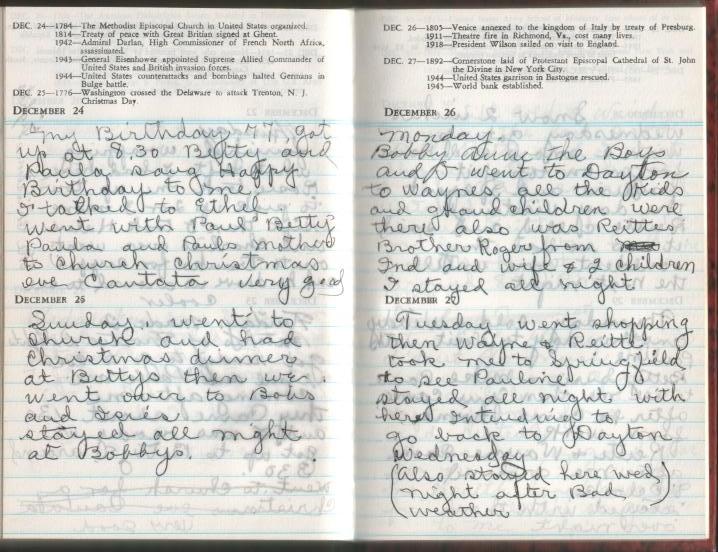 DEC. 24—1784—The Methodist Episcopal Church in United States organized.
1814—Treaty of peace with Great Britian signed at Ghent.
1942—Admiral Darlan, High Commissioner of French North Africa,
assassinated.
1943—General Eisenhower appointed Supreme Allied Commander of
United States and British invasion forces.
1944—United States counterattacks and bombings halted Germans in
Bulge battle.
DEC. 25—1776—Washington crossed the Delaware to attack Trenton, N. J.
Christmas Day.
DECEMBER 24
my Birthday 77 got
up at 8.30 Betty and
Paula sang Happy
Birthday to me.
I talked to Ethel
went with Paul Betty
Paula and Pauls mother
to church Christmas
eve Cantata very good
DECEMBER 25
Sunday. went to
church and had
Christmas dinner
at Bettys then we
went over to Bobs
and
stayed all night
at Bobbys.
DEC. 26—1805—Venice annexed to the kingdom of Italy by treaty of Presburg.
1911—Theatre fire in Richmond, Va., cost many lives.
1918—President Wilson sailed on visit to England.
DEC. 27—1892—Cornerstone laid of Protestant Episcopal Cathedral of St. John
the Divine in New York City.
1944—United States garrison at Bastogne rescued.
1945—World bank established.
DECEMBER 26
Monday.
Bobby June the Boys
and I went to Dayton
to Waynes all the Kids
and grand children were
there also was Reittes
Brother Roger from
Ind and wife & 2 children
I stayed all night.
DECEMBER 27
Tuesday went shopping
then Wayne & Reitte
took me to Springfild
to see Pauline
stayed all night with
her. Intending to
go back to Dayton
Wednesday
(Also stayed here Wed)
night after Bad
weather